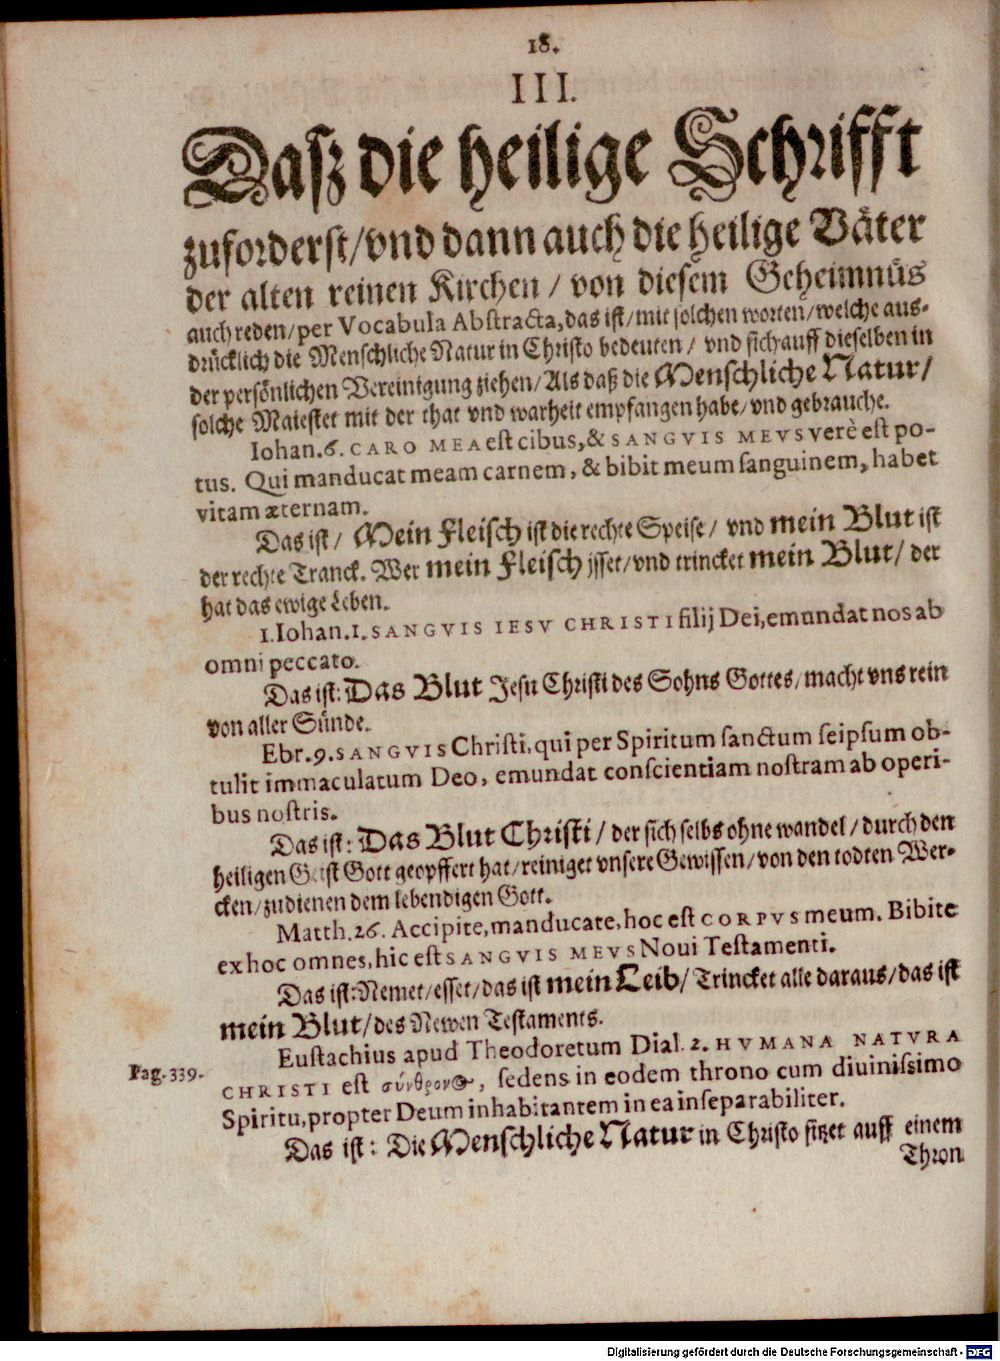 18.
III.
Dasz die heilige Schrifft
zuforderst/vnd dann auch die heilige Väter
der alten reinen Kirchen / von diesem Geheimnüs
auch reden/per Vocabula Abstracta,das ist/mit solchen worten/welche aus-
drücklich die Menschliche Natur in Christo bedeuten/ vnd sich auff dieselben in
der persönlichen Vereinigung ziehen/Als daß die Menschliche Natur/
solche Maiestet mit der that vnd warheit empfangen habe/vnd gebrauche.
Iohan.6. CARO MEA est cibus,& SANGVIS MEVS verè est po-
tus. Qui manducat meam carnem, & bibit meum sanguinem, habet
vitam æternam.
Das ist/ Mein Fleisch ist die rechte Speise/ vnd mein Blut ist
der rechte Tranck. Wer mein Fleisch jsset/vnd trincket mein Blut/ der
hat das ewige Leben.
1.Iohan.1. SANGVIS IESV CHRISTI filij Dei,emundat nos ab
omni peccato.
Das ist: Das Blut Jesu Christi des Sohns Gottes/macht vns rein
von aller Sünde.
Ebr.9. SANGVIS Christi,qui per Spiritum sanctum seipsum ob-
tulit immaculatum Deo, emundat conscientiam nostram ab operi-
bus nostris.
Das ist: Das Blut Christi/ der sich selbs ohne wandel/durch den
heiligen Geist Gott geopffert hat/reiniget vnsere Gewissen/von den todten Wer-
cken/zu dienen dem lebendigen Gott.
Matth.26. Accipite,manducate,hoc est CORPVS meum. Bibite
ex hoc omnes,hic est SANGVIS MEVS Noui Testamenti.
Das ist:Nemet/esset/das ist mein Leib/Trincket alle daraus/das ist
mein Blut/des Newen Testaments.
Eustachius apud Theodoretum Dial.2. HVMANA NATVRA
Pag.339.
CHRISTI est σύνθρονος, sedens in eodem throno cum diuinissimo
Spiritu,propter Deum inhabitantem in ea inseparabiliter.
Das ist: Die Menschliche Natur in Christo sitzet auff einem
Thron
Digitalisierung gefördert durch die Deutsche Forschungsgemeinschaft - DFG